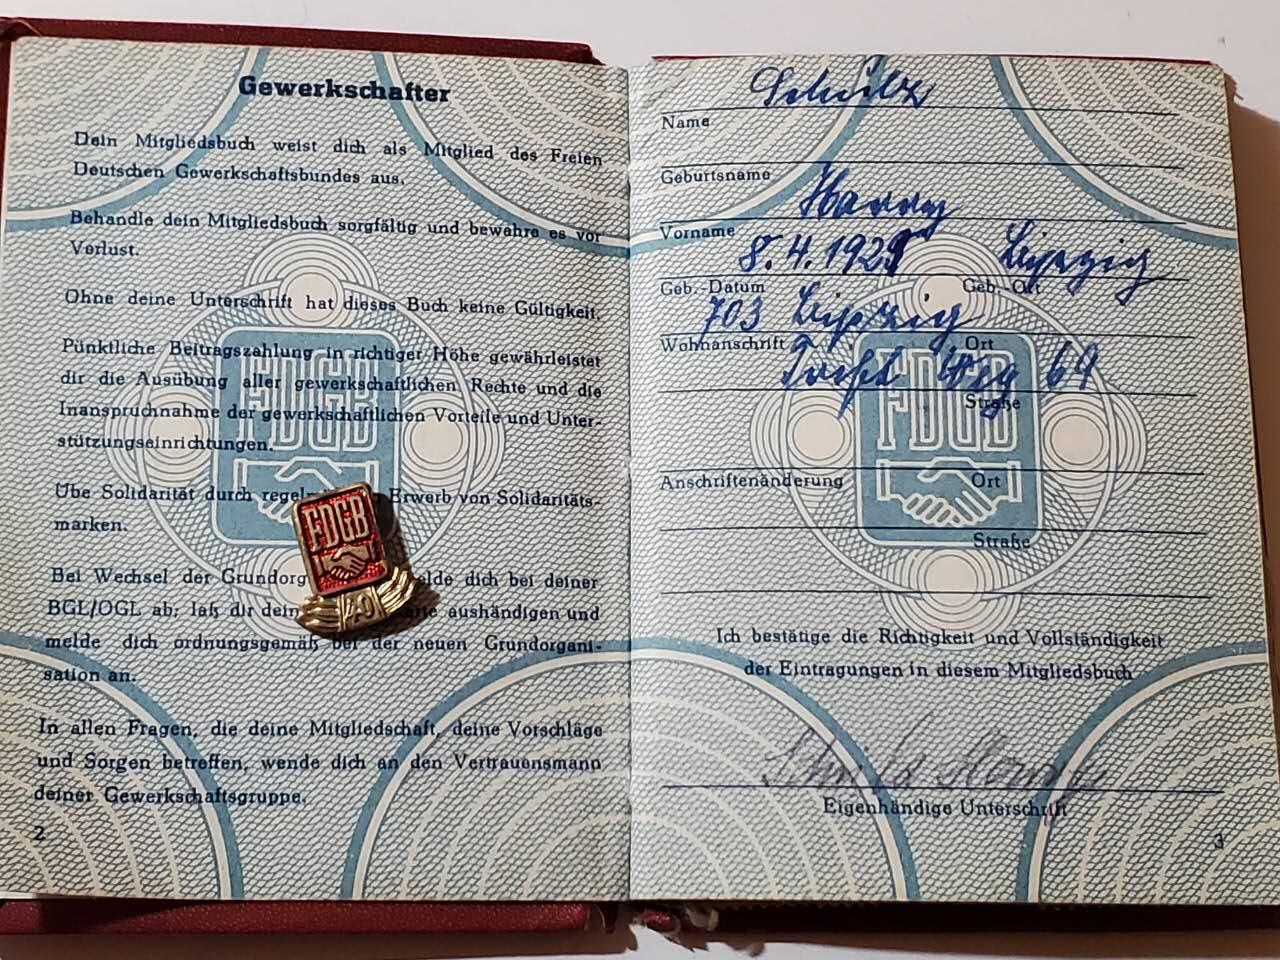 Gewerkschafter
Dein Mitgliedsbuch weist dich als Mitglied des Freien
Deutschen Gewerkschaftsbundes aus.
Behandle dein Mitgliedsbuch sorgfältig und bewahre es vor
Verlust.
Ohne deine Unterschrift hat dieses Buch keine Gültigkeit.
Pünktliche Beitragszahlung in richtiger Höhe gewährleistet
dir die Ausübung aller gewerkschaftlichen Rechte und die
Inanspruchnahme der gewerkschaftlichen Vorteile und Unter-
stützungseinrichtungen.
FDGB
Übe Solidarität durch regel Erwerb von Solidaritäts-
marken.
FDGB
40
Bei Wechsel der Grundorg elde dich bei deiner
BGL/OGL ab; laß dir dein te aushändigen und
melde dich ordnungsgemäß bei der neuen Grundorgani-
sation an.
In allen Fragen, die deine Mitgliedschaft, deine Vorschläge
und Sorgen betreffen, wende dich an den Vertrauensmann
deiner Gewerkschaftsgruppe.
2
Name
Geburtsname
Harry
Vorname
8.4.1929 Leipzig
Geb.-Datum Geb.-Ort
703 Leipzig
Wohnanschrift Ort
Weg 69
Straße
FDGB
Anschriftenänderung Ort
Straße
Ich bestätige die Richtigkeit und Vollständigkeit
der Eintragungen in diesem Mitgliedsbuch
Eigenhändige Unterschrift
3